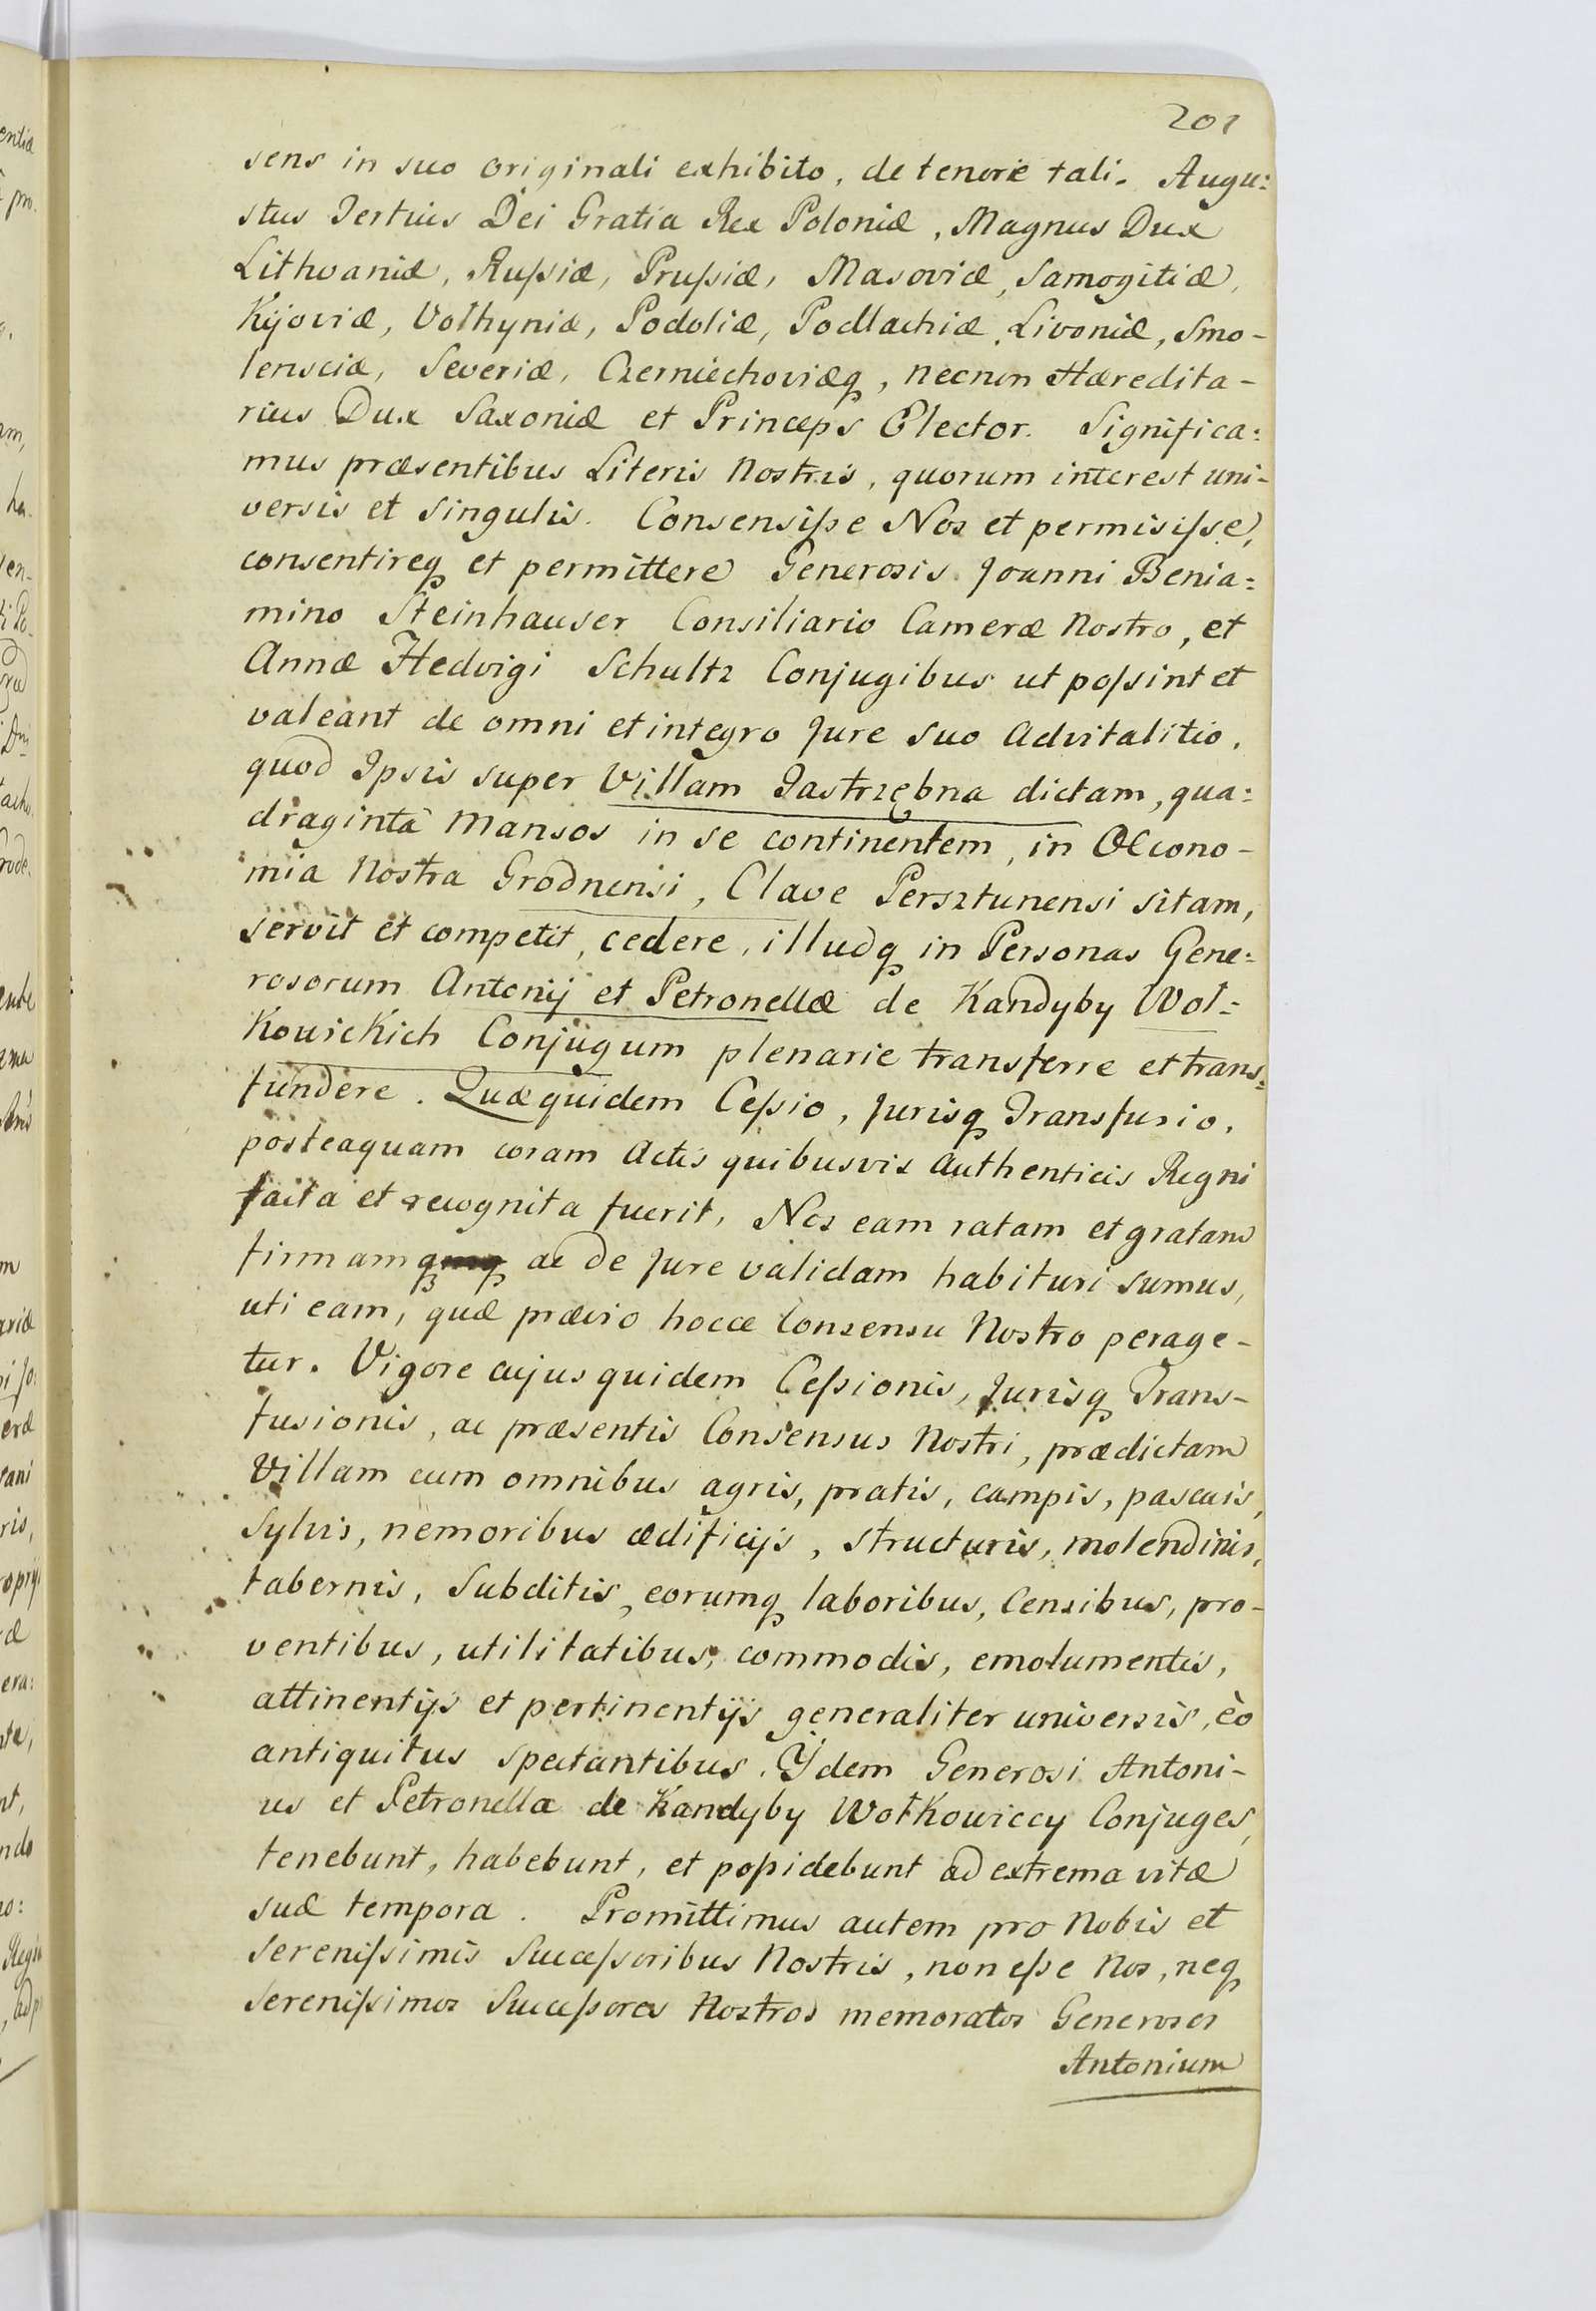 201
sens in suo originali exhibito, de tenore tali. Augu:
stus Tertius Dei Gratia Rex Poloniæ, Magnus Dux
Lithvaniæ, Rußiæ, Prußiæ, Masoviæ, Samogitiæ,
Kijoviæ, Volhyniæ, Podoliæ, Podlachiæ, Livoniæ, Smo-
lensciæ, Severiæ, Czerniechoviæq, necnon Hæredita-
rius Dux Saxoniæ et Princeps Elector. Significa:
mus præsentibus Literis Nostris, quorum interest uni-
versis et singulis. Consensiße Nos et permisiße,
consentireq et permittere Generosis Joanni Benia:
mino Steinhauser Consiliario Cameræ Nostro, et
Annæ Hedvigi Schultz Conjugibus ut poßint et
valeant de omni et integro Jure suo Advitalitio,
quod Ipsis super Villam Jastrzębna dictam, qua:
draginta Mansos in se continentem, in Oecono-
mia Nostra Grodnensi, Clave Persztunensi sitam,
servit et competit, cedere, illudq in Personas Gene:
rosorum Antonij et Petronellæ de Kandyby Woł:
kowickich Conjugum plenarie transferre et trans:
fundere. Quæquidem Ceßio, Jurisq Transfusio,
posteaquam coram Actis quibusvis Authenticis Regni
facta et recognita fuerit, Nos eam ratam et gratam
firmamq ac de Jure validam habituri sumus,
uti eam, quæ prævio hocce Consensu Nostro perage-
tur. Vigore cujus quidem Ceßionis, Jurisq Trans-
fusionis, ac præsentis Consensus Nostri, prædictam
Villam cum omnibus agris, pratis, campis, pascuis,
Sylvis, nemoribus ædificijs, structuris, molendinis,
tabernis, Subditis, eorumq laboribus, Censibus, pro-
ventibus, utilitatibus, commodis, emolumentis,
attinentijs et pertinentijs generaliter universis, èo
antiquitus spectantibus. Ijdem Generosi Antoni-
us et Petronella de Kandyby Wołkowiccy Conjuges,
tenebunt, habebunt, et poßidebunt ad extrema vitæ
suæ tempora. Promittimus autem pro Nobis et
Serenißimis Succeßoribus Nostris, non eße Nos, neq
Serenißimos Succeßores Nostros memoratos Generosos
Antonium